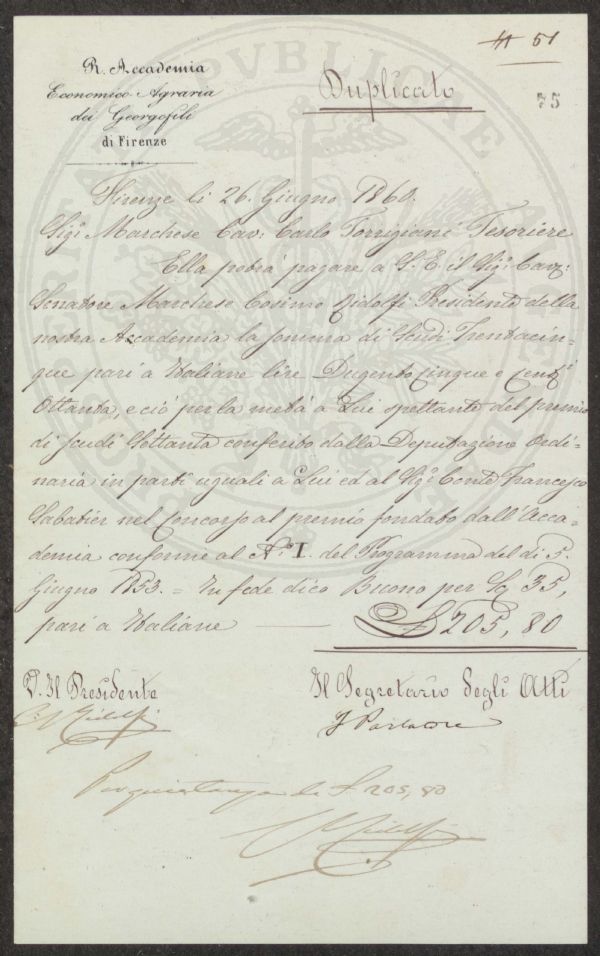 51
R. Accademia
Economico Agraria
dei Georgofili
di Firenze
Duplicato
75
Firenze li 26. Giugno 1860.
Sigr. Marchese Cav: Carlo Torrigiani Tesoriere
Ella potrà pagare a S. E. il Sigr. Cav:
Senatore Marchese Cosimo Ridolfi Presidente della
nostra Accademia la somma di Scudi Trentacin=
que pari a Italiane lire Dugento Cinque e Centi
Ottanta, e ciò per la metà a Lui spettante del premio
di scudi Settanta conferito dalla Deputazione Ordi=
naria in parti uguali a Lui ed al Sigr. Conte Francesco
Sabatier nel Concorso al premio fondato dall'Acca=
demia conforme al No. I. del Programma del di 5.
Giugno 1853. = In fede dico Buono per Sc 35,
pari a Italiane £ 205, 80
V. Il Presidente
C. Ridolfi
Il Segretario degli Atti
F Parlatore
Per quietanza di £ 205, 80
C Ridolfi